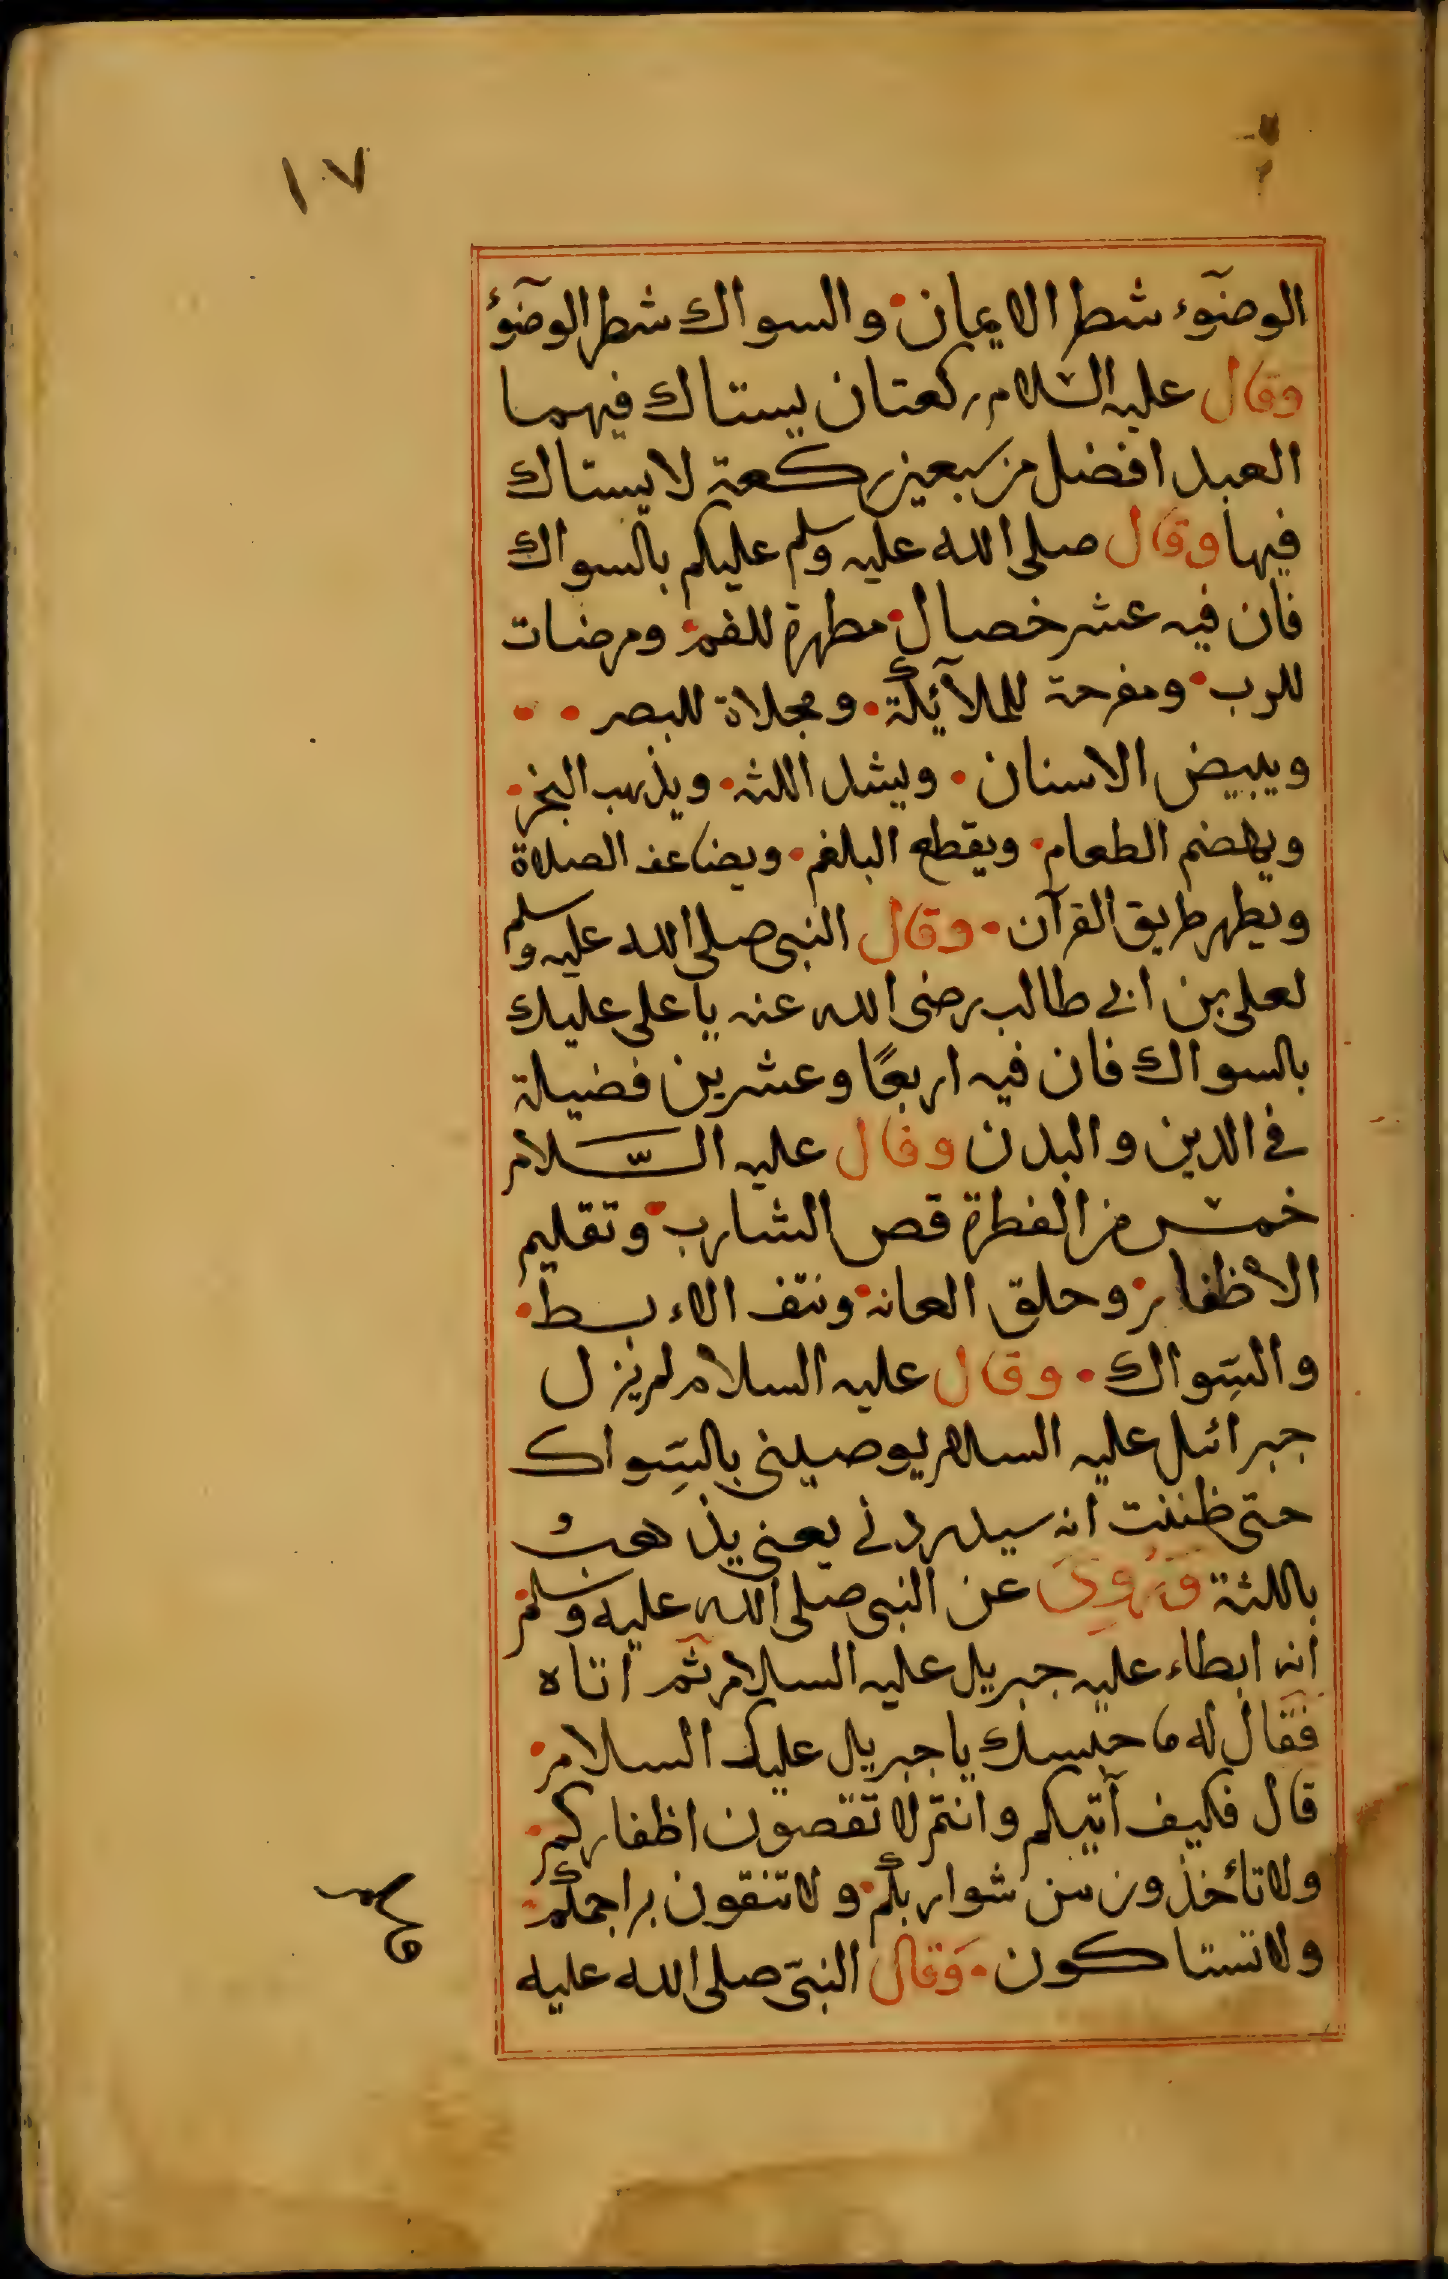 ١٧
الوضوٓء شطر الايمان والسواك شطر الوضوٓء
وقال عليه السلام ركعتان يستاك فيهما
العبد افضل من سبعين ركعة لا يستاك
فيها وقال صلى الله عليه وسلم عليكم بالسواك
فان فيه عشر خصال مطهرة للفم ومرضات
للرب ومفرحة للملآئكة ومجلاة للبصر
ويبيض الاسنان ويشد اللثه ويذهب البخر
ويهضم الطعام ويقطع البلغم ويضاعف الصلاة
ويطهر طريق القرآن وقال النبى صلى الله عليه وسلم
لعلى بن ابى طالب رضى الله عنه يا على عليك
بالسواك فان فيه اربعًا وعشرين فضيلة
فى الدين والبدن وقال عليه السَّلام
خمس من الفطرة قص الشارب وتقليم
الاظفار وحلق العانه ونتف الاءبط
والسِّواك وقال عليه السلام لم يزل
جبرائيل عليه السلام يوصينى بالسِّواك
حتى ظننت انه سيدردنى يعنى يذهب
باللثة وَرُوِىَ عن النبى صلى الله عليه وسلم
انه ابطاء عليه جبريل عليه السلام ثم اتاه
فقال له ما حبسك يا جبريل عليك السلام
قال فكيف آتيكم وانتم لا تقصون اظفاركم
ولا تأخذون من شواربكم ولا تنقون براجمكم
ولا تستاكون وَقال النبىّ صلى الله عليه